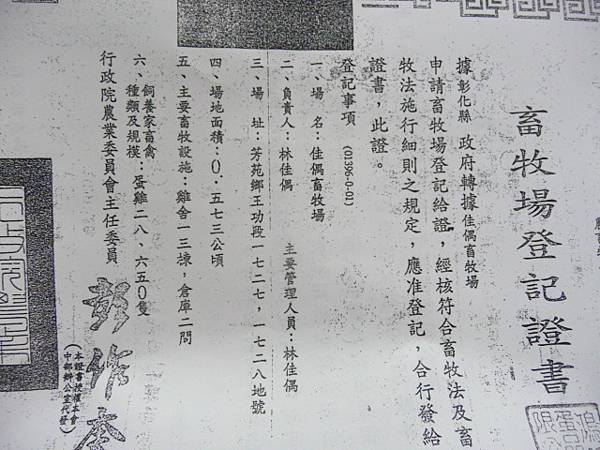 畜牧場登記證書
據彰化縣 政府轉據佳偶畜牧場
申請畜牧場登記給證，經核符合畜牧法及畜
牧法施行細則之規定，應准登記，合行發給
證書，此證。
登記事項 (01396-0-01)
一、場 名：佳偶畜牧場
二、負責人：林佳偶 主要管理人員：林佳偶
三、場 址：芳苑鄉王功段一七二七，一七二八地號
四、場地面積：0．五七三公頃
五、主要畜牧設施：雞舍一三棟，倉庫二間
六、飼養家畜禽種類及規模：蛋雞二八、六五0隻
行政院農業委員會主任委員 彭作奎
（本證書授權本會
中部辦公室代發）